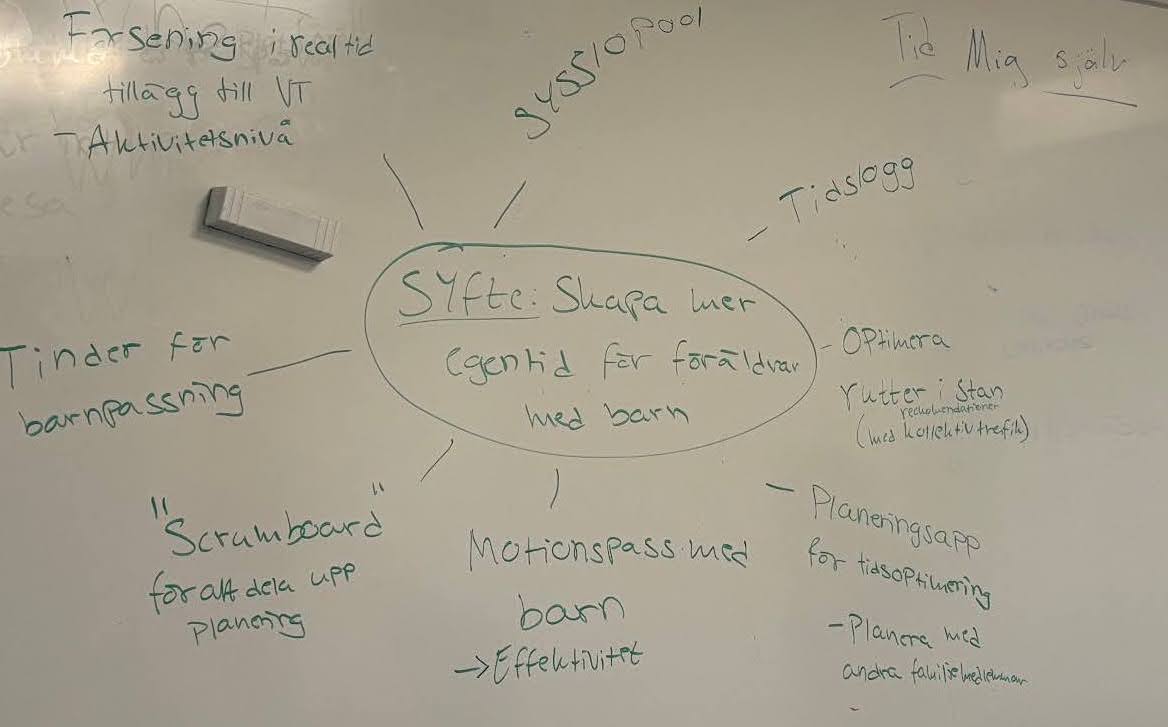 Försening i realtid
tillägg till VT
- Aktivitetsnivå
sysslopool
Tid Mig själv
Tidslogg
Syfte: Skapa mer
egentid för föräldrar
med barn
Tinder för
barnpassning
- Optimera
rutter i stan
(med kollektivtrafik)
"Scrumboard"
för att dela upp
planering
Motionspass med
barn
→ Effektivitet
- Planeringsapp
för tidsoptimering
- Planera med
andra familjemedlemmar
-